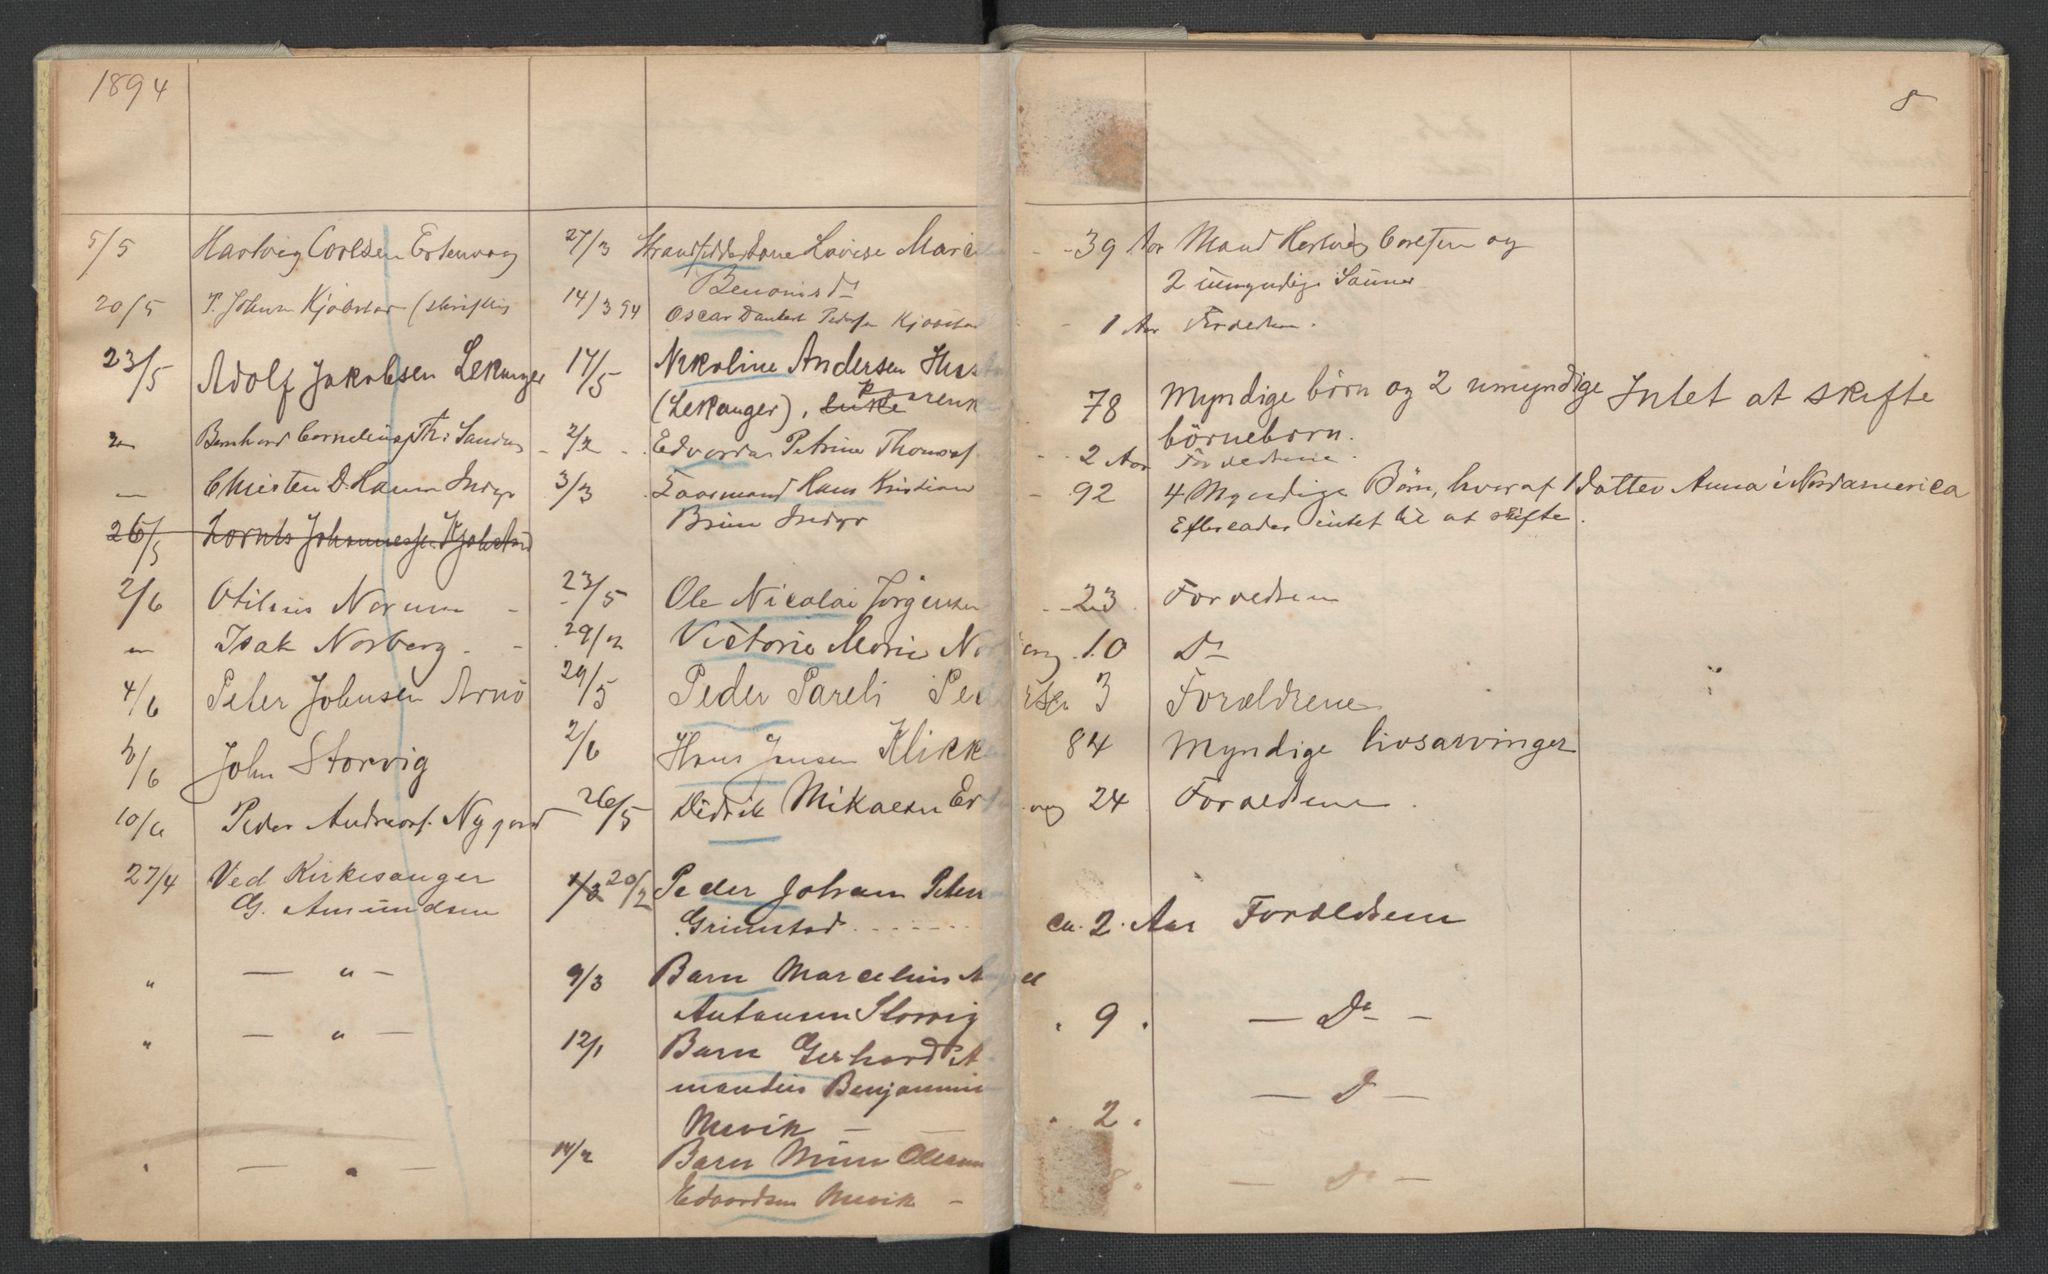 1894
8
5/5 Hartvig Corlsen Ertenvog 27/3 Strandsidderkone Lovise Marie - 39 Aar Mand Hertvig Carlsen og
Benonisd. 2 umyndige Sønner
20/5 P. Johnsen Kjøbstad (skriftlig 14/3 94 Oscar Dankert Peders. Kjøbstad - 1 Aar Forældrene.
23/5 Adolf Jakobsen Lekanger 17/5 Nikoline Andersen
(Lekanger), enke 78 Myndige börn og 2 umyndige Intet at skifte
börnebörn.
" Bernhard Cornelius Sandnes 2/2 Edvarda Petrine Thomas. - 2 Aar Forældrene.
— Christen D. Hansen Indyr 3/3 Laarmand Hans Kristian - 92 4 Myndige Børn, hvoraf 1 datter Anna i Nordamerica
Brun Indyr Efterlader intet til at skifte.
26/5 Lornts Johanness. Kjøbstad
2/6 Otilius Norum - 23/5 Ole Nicolai Jörgensen - 23 Forældrene
— Isak Norberg - 29/ Victoria Marie Norberg 10 Do
4/6 Peter Johnsen Arnö 29/5 Peder Pareli Pedersen 3 Forældrene
/6 John Storvig 2/6 Hans Jensen Klikk 84 Myndige livsarvinger
10/6 Peder Andreas. Nygaard 26/5 Didrik Mikaelsen 24 Forældrene.
27/4 Ved Kirkesanger 20/2 Peder Johan Peters.
G. Amundsen Grimstad ca. 2 Aar Forældrene
" — " — 9/3 Barn Marcelius
Antonsen Storvig 9 — Do —
" — " — 12/1 Barn Gerhard A-
mandus Benjamin
Mevik — 2 — Do —
" — " — 14/2 Barn
Edvardsen Mevik — 8 — Do —